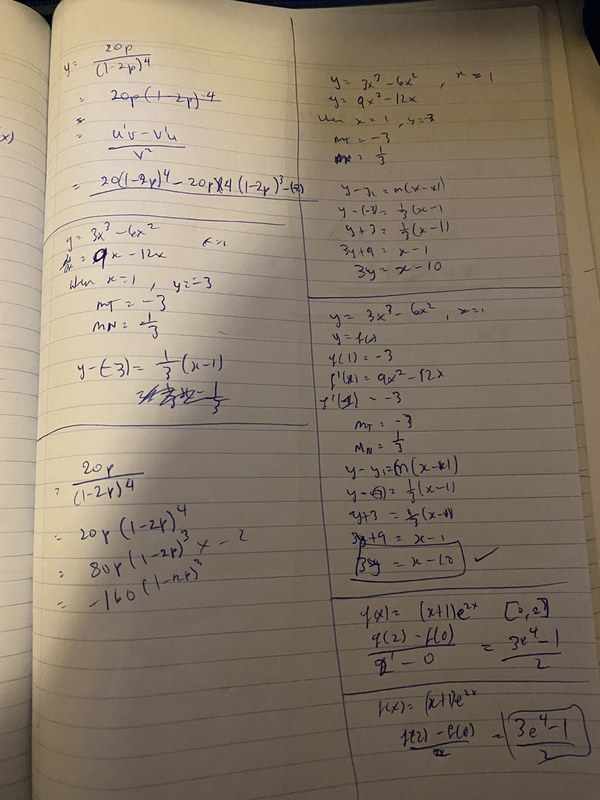 y = 20p / (1-2p)^4
= 20p(1-2p)^-4
= u'v - v'u / v^2
= 20(1-2p)^4 - 20p×4(1-2p)^3 -(2)
y = 3x^3 - 6x^2
dy/dx = 9x - 12x x=1
when x=1 , y=-3
mT = -3
mN = 1/3
y-(-3) = 1/3 (x-1)
= 20p / (1-2p)^4
= 20p (1-2p)^4
= 80p (1-2p)^3 x -2
= -160 (1-2p)^3
y = 3x^3 - 6x^2 , x = 1
y = 9x^2 - 12x
when x = 1 , y=-3
mT = -3
mN = 1/3
y - y1 = m(x - x1)
y-(-3) = 1/3 (x-1
y+3 = 1/3 (x-1)
3y+9 = x-1
3y = x-10
y = 3x^3 - 6x^2 , x=1
y = f(x)
f(1) = -3
f'(x) = 9x^2 - 12x
f'(1) = -3
mT = -3
mN = 1/3
y - y1 = m(x-x1)
y-(-3) = 1/3 (x-1)
y+3 = 1/3 (x-1)
3y+9 = x-1
3y = x-10 ✓
f(x) = (x+1)e^2x [0,2]
f(2) - f(0) / 2 - 0 = 3e^4 - 1 / 2
f(x) = (x+1)e^2x
f(2) - f(0) / 2 = 3e^4 - 1 / 2